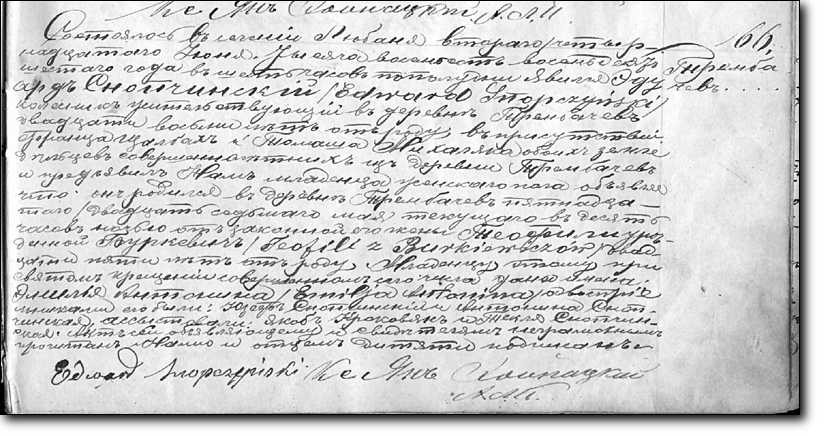 Кс Янъ
А.М.П.
Состоялось въ селеніи Любаня втораго четыр
надцатаго Іюня тысяча восемьсотъ восемьдесятъ
шестаго года въ шесть часовъ пополудни явился Эду
ардъ Сторчинскій /Edward Storczyński/
учительствующій въ деревнѣ Трембачевъ
двадцати восьми лѣтъ отъ роду, въ присутствіи
Франца и Томаша Михаляка обоихъ земле
дѣльцевъ совершеннолѣтнихъ изъ деревни Трембачевъ
и предъявилъ Намъ младенца женскаго пола объявляя
что онъ родился въ деревнѣ Трембачевъ пятнадца-
таго /двадцать седьмаго мая текущаго въ десять
часовъ ночью отъ законной его жены Теофили урож
денной Буркевичъ /Teofili z Burkiewiczów/ двад
цати пяти лѣтъ отъ роду Младенцу этому при
святомъ крещеніи совершенномъ сего числа даны имена
Эмилія Антонина /Emilja Antonina/ а воспріе
мниками его были: Юзефъ и Антонина
ассистовали: Якобъ и Текля
Актъ сей объявляющему и свидѣтелямъ неграмотнымъ
прочитанъ Нами и отцемъ дитяти подписанъ
Edward Storczyński Кс Янъ
А.М.П.
66.
Тремба
чевъ....